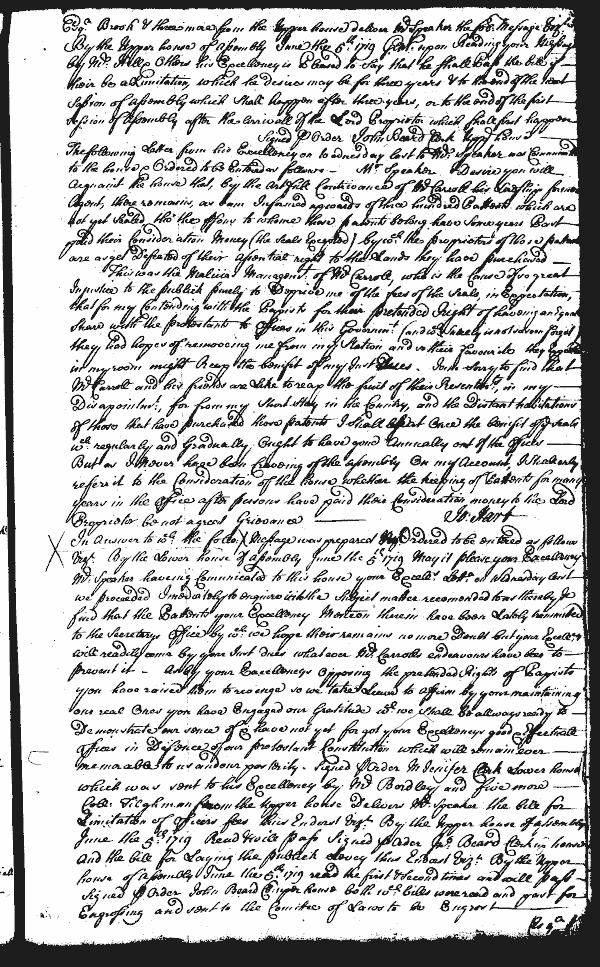 Esqr. Brook & three more from the Upper house deliver Mr Speaker the foll: Message Vizt.
By the Upper house of Assembly June the 5th 1719 Gent. upon Reading your Message
by Mr. Hill & Others his Excellency is pleased to Say that he shall pass the bill if
their be a Limitation, which he desires may be for three years & to the end of the next
Session of Assembly which Shall happen after three years, or to the end of the first
Session of Assembly after the arrivall of the Lord Proprietor which shall first happen
Signed P Order John Beard Clerk Upp. house
The following Letter from his Excellency on Wednesday last to Mr. Speaker was Communicated
to the house & Ordered to be Entered as follows - Mr. Speaker Desire you will
Acquaint the house that by the Artfull Contrivance of Mr Carroll his Lordships former
Agent, there remains, as I am Informed upwards of three hundred Pattents which are
not yet Sealed, tho' the persons to whome those patents belong have Some years Past
paid their Consideration Money (the Seals Excepted) by wch. the proprietors of those patents
are as yet Defeated of their Essential right to the Lands they have purchased
This was the Malicious Managemt. of Mr Carroll, who is the Cause of so great
Injustice to the publick purely to Deprive me of the fees of the Seals, in Expectation,
that for my Contending with the Papists for their pretended Right of having an Equal
Share with the protestants to Offices in this Governmt.
they had hopes of removeing me from my Station and so their favourite
in my room might Reap the benefit of my Just Dues. I am Sorry to find that
Mr Carroll and his friends are Like to reap the fruit of their Resentmt. in my
Disapointmt. for from my Short Stay in the Country, and the Distant habitations
of those that have purchased those patents I shall the benefit of Seals
wch. regularly and Gradually Ought to have gone Annually out of the Office
But as I Never have been Craveing of the Assembly On my Account, I Shall only
refer it to the Consideration of the house whether the keeping of Pattents for many
years in the Office after persons have paid their Consideration money to the Lord
Proprietor be not a great Grievance Jo: Hart
In Answer to wch. the follo: Message was prepared & Ordered to be entered as follows
Vizt. By the Lower house of Assembly June the 5th 1719 May it please your Excellency
Mr. Speaker having Communicated to this house your Excellys. Lettr. on Wednesday last
we proceeded Imediately to enquire into the Subject matter recomended to us thereby &
find that the Pattents your Excellency Mention therein have been Lately transmitted
to the Secretarys Office by wch. we hope their remains no more Doubt but your Excelly.
will readily come by your Just dues whatever Mr. Carrolls endeavours have been to
prevent it - As by your Excellencys opposing the pretended Rights of Papists
you have raised them to revenge so we take Leave to affirm by your maintaining
our real Ones you have Engaged our Gratitude wch. we Shall be always ready to
Demonstrate our sence of & have not yet forgot your Excellencys good & effectuall
Offices in Defence of our protestant Constitution which will remain ever
memorable to us and our posterity. Signed P Order M Jenifer Clerk Lower house
which was sent to his Excellency by Mr Bordley and five more
Coll: Tilghman from the Upper house Delivers Mr. Speaker the bill for
Limitation of Officers fees thus Endorst Vizt. By the Upper house of Assembly
June the 5th 1719 Read & will pass Signed P Order Jno. Beard Clerk up house
And the bill for Laying the publick Leavy thus Endorst Vizt. By the Upper
house of Assembly June the 5th 1719 read the first & second times and will pass
Signed P Order John Beard Cl upper house both wch. bills were read and past for
Engrossing and sent to the Comittee of Laws to be Engrost